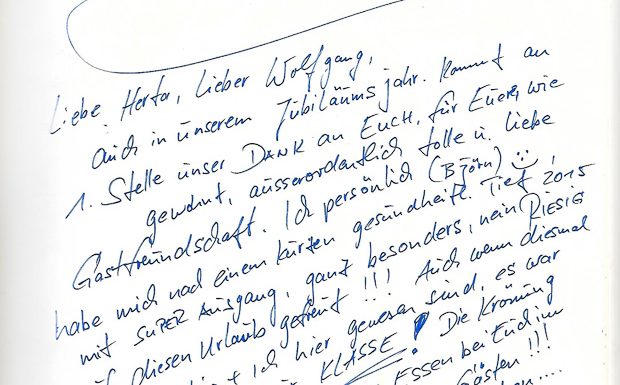 Liebe Herta, Lieber Wolfgang,
auch in unserem Jubiläumsjahr. kommt an
1. Stelle unser DANK an EUCH, für Euere, wie
gewohnt, ausserordentlich tolle u. liebe
Gastfreundschaft. Ich persönlich (Björn) ☺
habe mich nach einem kurzen gesundheitl. Tief, 2015
mit SUPER AUSGANG, ganz besonders, nein RIESIG
diesen Urlaub gefreut !!! Auch wenn diesmal
Ich hier gewesen sind, es war
KLASSE! Die Krönung
Essen bei Euch im
Gästen !!!